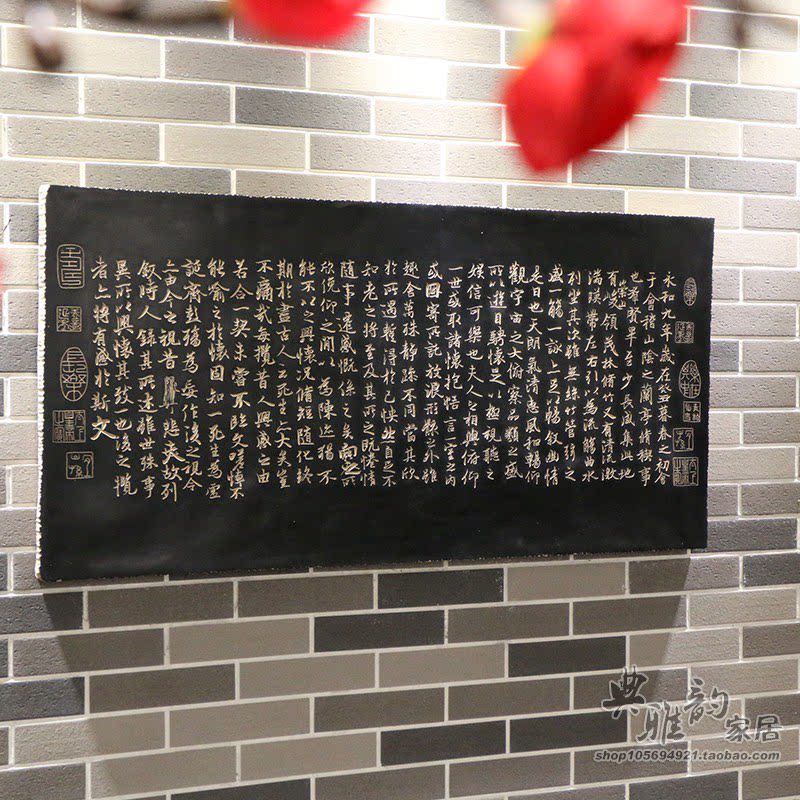 永和九年歲在癸丑暮春之初會
于會稽山陰之蘭亭脩禊事
也羣賢畢至少長咸集此地
有崇山峻領茂林脩竹又有清流激
湍暎帶左右引以為流觴曲水
列坐其次雖無絲竹管弦之
盛一觴一詠亦足以暢敘幽情
是日也天朗氣清惠風和暢仰
觀宇宙之大俯察品類之盛
所以遊目騁懷足以極視聽之
娛信可樂也夫人之相與俯仰
一世或取諸懷抱悟言一室之內
或因寄所託放浪形骸之外雖
趣舍萬殊靜躁不同當其欣
於所遇暫得於己快然自足不
知老之將至及其所之既惓情
隨事遷感慨係之矣向之所
欣俛仰之間以為陳迹猶不
能不以之興懷況脩短隨化終
期於盡古人云死生亦大矣豈
不痛哉每攬昔人興感之由
若合一契未嘗不臨文嗟悼不
能喻之於懷固知一死生為虛
誕齊彭殤為妄作後之視今
亦由今之視昔悲夫故列
敘時人錄其所述雖世殊事
異所以興懷其致一也後之攬
者亦將有感於斯文
典雅韵
家居
shop105694921.taobao.com